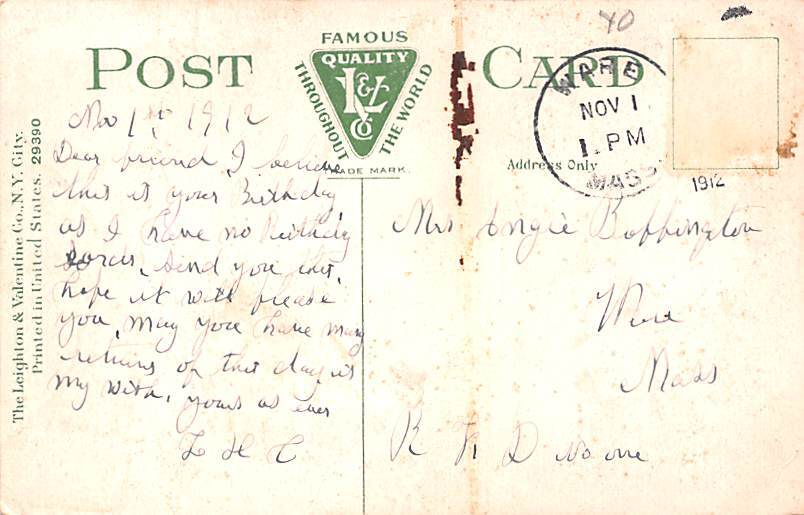 POST CARD
FAMOUS
QUALITY
L & V Co
THROUGHOUT THE WORLD
TRADE MARK.
Address Only
WARE
NOV 1
1. PM
MASS
1912
The Leighton & Valentine Co., N.Y. City.
Printed in United States. 29390
Nov 1st 1912
Dear friend I believe
this is your Birthday
as I have no Birthday
Cards, Send you this,
hope it will please
you, may you have many
returns of this day is
my wish, yours as ever
L H C
Mrs Angie Boffington
Ware
Mass
R F D No one